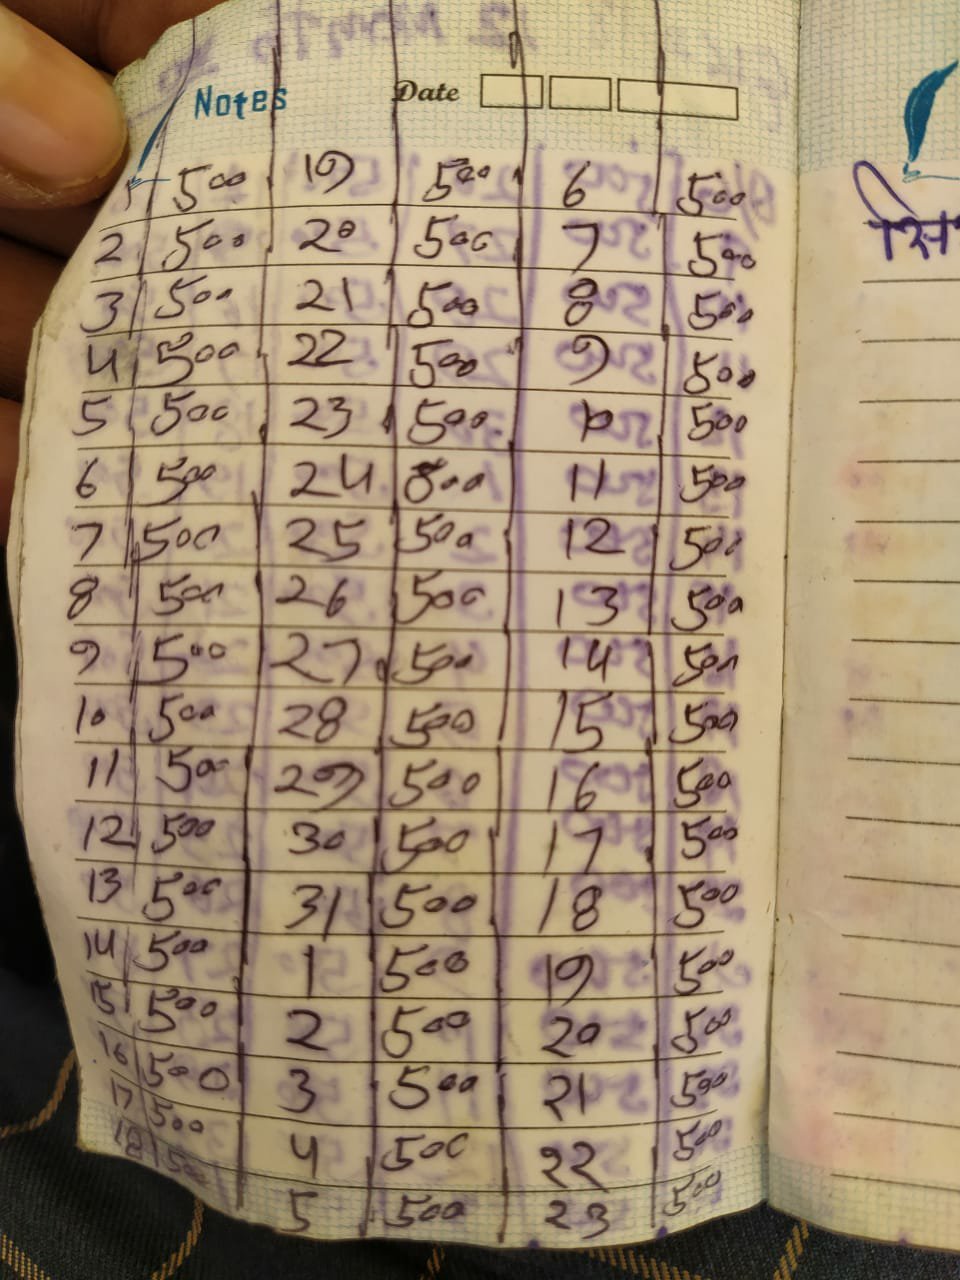 Notes Date
1 500 19 500 6 500
2 500 20 500 7 500
3 500 21 500 8 500
4 500 22 500 9 500
5 500 23 500 10 500
6 500 24 500 11 500
7 500 25 500 12 500
8 500 26 500 13 500
9 500 27 500 14 500
10 500 28 500 15 500
11 500 29 500 16 500
12 500 30 500 17 500
13 500 31 500 18 500
14 500 1 500 19 500
15 500 2 500 20 500
16 500 3 500 21 500
17 500 4 500 22 500
18 500 5 500 23 500